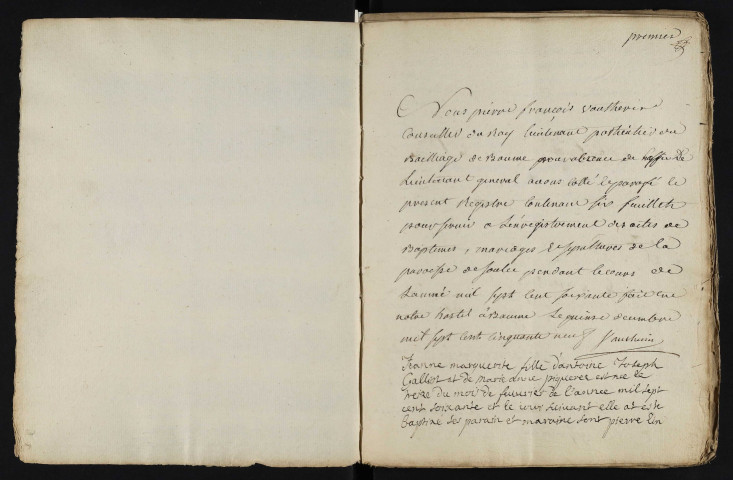 premier
Nous pierre françois vautherin
Conseiller du Roy Lieutenant particulier au
Bailliage de Baume pour absence de
Lieutenant general avons cotté et paraffé le
present Registre Contenant six feuillets
pour servir a L'enregistrement des actes de
Baptemes, mariages et sepultures de la
paroisse de pendant le cours de
L'année mil sept cent soixante fait en
notre hostel à Baume le quinse decembre
mil sept cent cinquante neuf Vautherin
Jeanne marguerite fille d'antoine Joseph
Galliot et de marie anne est nee le
treize du moi de fevrier de l'annee mil sept
cent soixante et le jour suivant elle at este
baptisse ses parain et maraine sont pierre